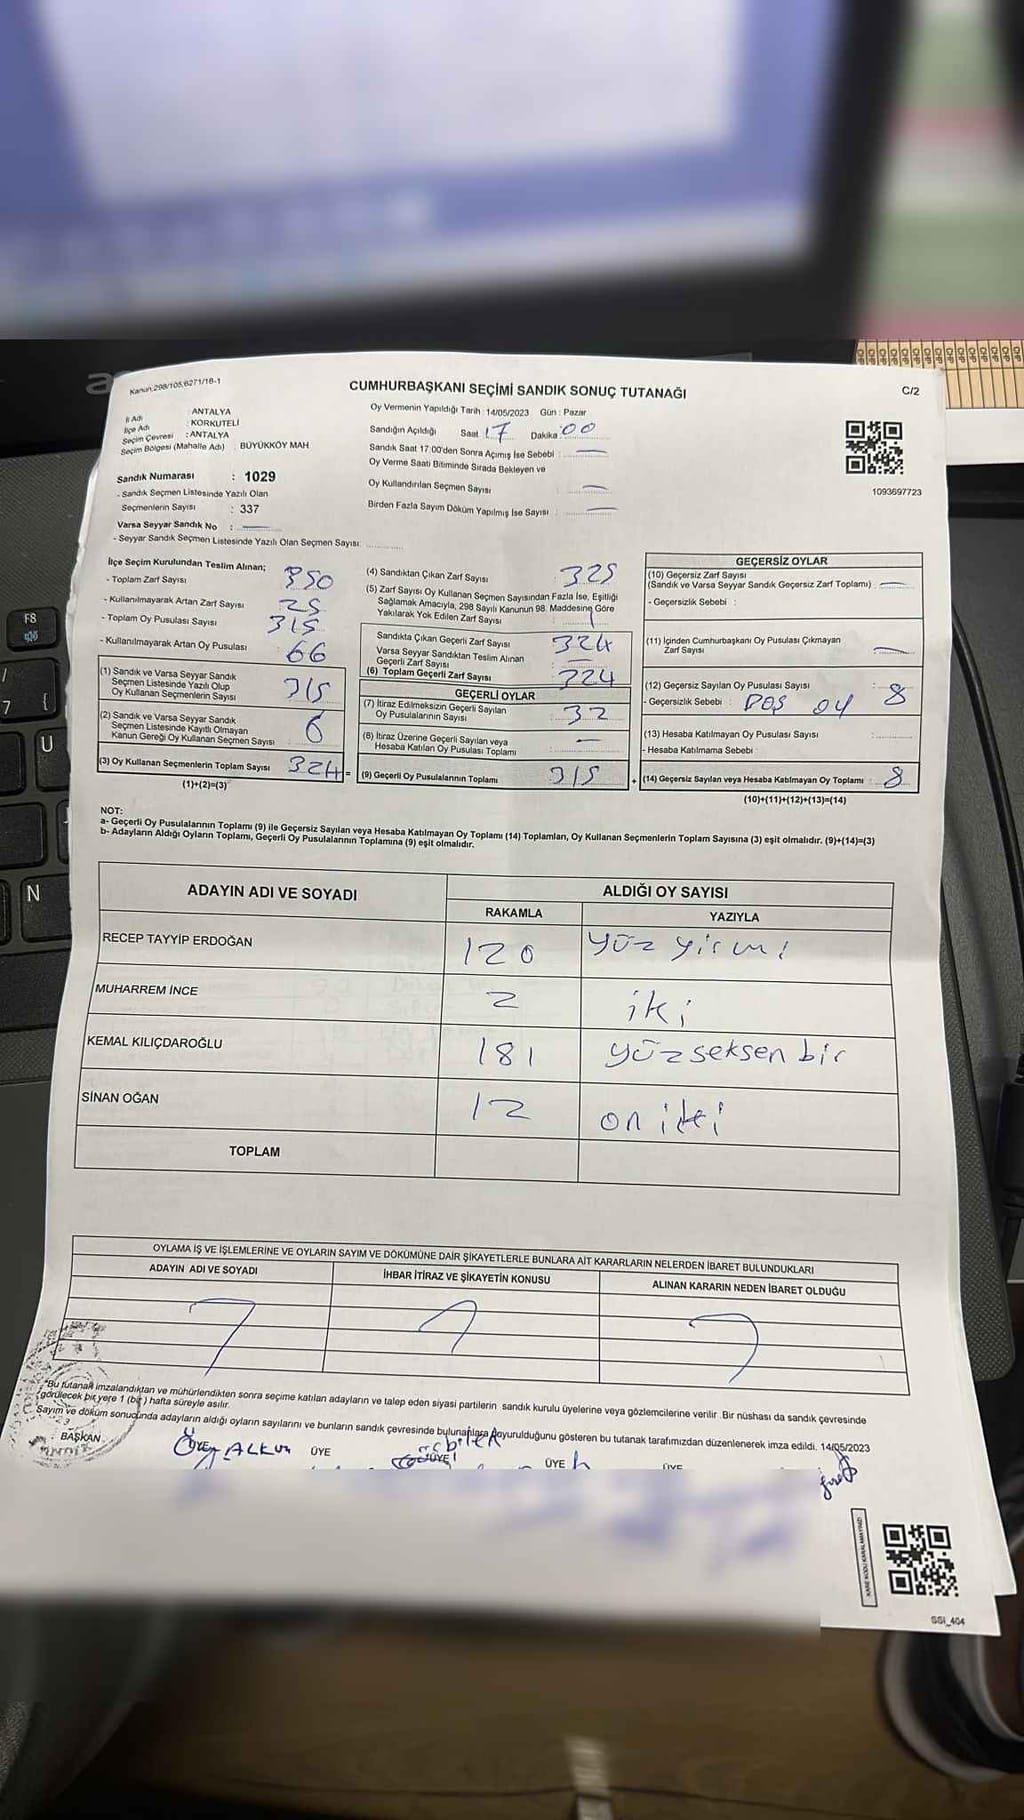 Kanun:298/105,6271/18-1
CUMHURBAŞKANI SEÇİMİ SANDIK SONUÇ TUTANAĞI
C/2
İl Adı : ANTALYA
İlçe Adı : KORKUTELİ
Seçim Çevresi : ANTALYA
Seçim Bölgesi (Mahalle Adı) : BÜYÜKKÖY MAH
Sandık Numarası : 1029
- Sandık Seçmen Listesinde Yazılı Olan
Seçmenlerin Sayısı : 337
Varsa Seyyar Sandık No :
- Seyyar Sandık Seçmen Listesinde Yazılı Olan Seçmen Sayısı:
Oy Vermenin Yapıldığı Tarih : 14/05/2023 Gün : Pazar
Sandığın Açıldığı Saat 17 Dakika : 00
Sandık Saat 17:00'den Sonra Açımış İse Sebebi :
Oy Verme Saati Bitiminde Sırada Bekleyen ve
Oy Kullandırılan Seçmen Sayısı
Birden Fazla Sayım Döküm Yapılmış İse Sayısı :
1093697723
İlçe Seçim Kurulundan Teslim Alınan;
- Toplam Zarf Sayısı 350
- Kullanılmayarak Artan Zarf Sayısı 25
- Toplam Oy Pusulası Sayısı 315
- Kullanılmayarak Artan Oy Pusulası 66
(1) Sandık ve Varsa Seyyar Sandık
Seçmen Listesinde Yazılı Olup
Oy Kullanan Seçmenlerin Sayısı 315
(2) Sandık ve Varsa Seyyar Sandık
Seçmen Listesinde Kayıtlı Olmayan
Kanun Gereği Oy Kullanan Seçmen Sayısı 6
(3) Oy Kullanan Seçmenlerin Toplam Sayısı 324 =
(1)+(2)=(3)
(4) Sandıktan Çıkan Zarf Sayısı : 325
(5) Zarf Sayısı Oy Kullanan Seçmen Sayısından Fazla İse, Eşitliği
Sağlamak Amacıyla, 298 Sayılı Kanunun 98. Maddesine Göre
Yakılarak Yok Edilen Zarf Sayısı : 1
Sandıkta Çıkan Geçerli Zarf Sayısı : 324
Varsa Seyyar Sandıktan Teslim Alınan
Geçerli Zarf Sayısı
(6) Toplam Geçerli Zarf Sayısı : 324
GEÇERLİ OYLAR
(7) İtiraz Edilmeksizin Geçerli Sayılan
Oy Pusulalarının Sayısı : 32
(8) İtiraz Üzerine Geçerli Sayılan veya
Hesaba Katılan Oy Pusulası Toplamı
(9) Geçerli Oy Pusulalarının Toplamı 315 +
GEÇERSİZ OYLAR
(10) Geçersiz Zarf Sayısı
(Sandık ve Varsa Seyyar Sandık Geçersiz Zarf Toplamı)
- Geçersizlik Sebebi :
(11) İçinden Cumhurbaşkanı Oy Pusulası Çıkmayan
Zarf Sayısı
(12) Geçersiz Sayılan Oy Pusulası Sayısı : 8
- Geçersizlik Sebebi : BOŞ OY
(13) Hesaba Katılmayan Oy Pusulası Sayısı :
- Hesaba Katılmama Sebebi :
(14) Geçersiz Sayılan veya Hesaba Katılmayan Oy Toplamı : 8
(10)+(11)+(12)+(13)=(14)
NOT:
a- Geçerli Oy Pusulalarının Toplamı (9) ile Geçersiz Sayılan veya Hesaba Katılmayan Oy Toplamı (14) Toplamları, Oy Kullanan Seçmenlerin Toplam Sayısına (3) eşit olmalıdır. (9)+(14)=(3)
b- Adayların Aldığı Oyların Toplamı, Geçerli Oy Pusulalarının Toplamına (9) eşit olmalıdır.
ADAYIN ADI VE SOYADI ALDIĞI OY SAYISI
RAKAMLA YAZIYLA
RECEP TAYYİP ERDOĞAN 120 yüz yirmi
MUHARREM İNCE 2 iki
KEMAL KILIÇDAROĞLU 181 yüz seksen bir
SİNAN OĞAN 12 on iki
TOPLAM
OYLAMA İŞ VE İŞLEMLERİNE VE OYLARIN SAYIM VE DÖKÜMÜNE DAİR ŞİKAYETLERLE BUNLARA AİT KARARLARIN NELERDEN İBARET BULUNDUKLARI
ADAYIN ADI VE SOYADI İHBAR İTİRAZ VE ŞİKAYETİN KONUSU ALINAN KARARIN NEDEN İBARET OLDUĞU
*Bu tutanak imzalandıktan ve mühürlendikten sonra seçime katılan adayların ve talep eden siyasi partilerin sandık kurulu üyelerine veya gözlemcilerine verilir. Bir nüshası da sandık çevresinde
görülecek bir yere 1 (bir) hafta süreyle asılır.
Sayım ve döküm sonucunda adayların aldığı oyların sayılarını ve bunların sandık çevresinde bulunanlara duyurulduğunu gösteren bu tutanak tarafımızdan düzenlenerek imza edildi. 14/05/2023
BAŞKAN ÜYE ÜYE ÜYE ÜYE ÜYE
KARE KODU KARALAMAYINIZ!
SSİ_404
F8
7
U
N
CHP CHP CHP CHP CHP CHP CHP CHP CHP CHP CHP CHP